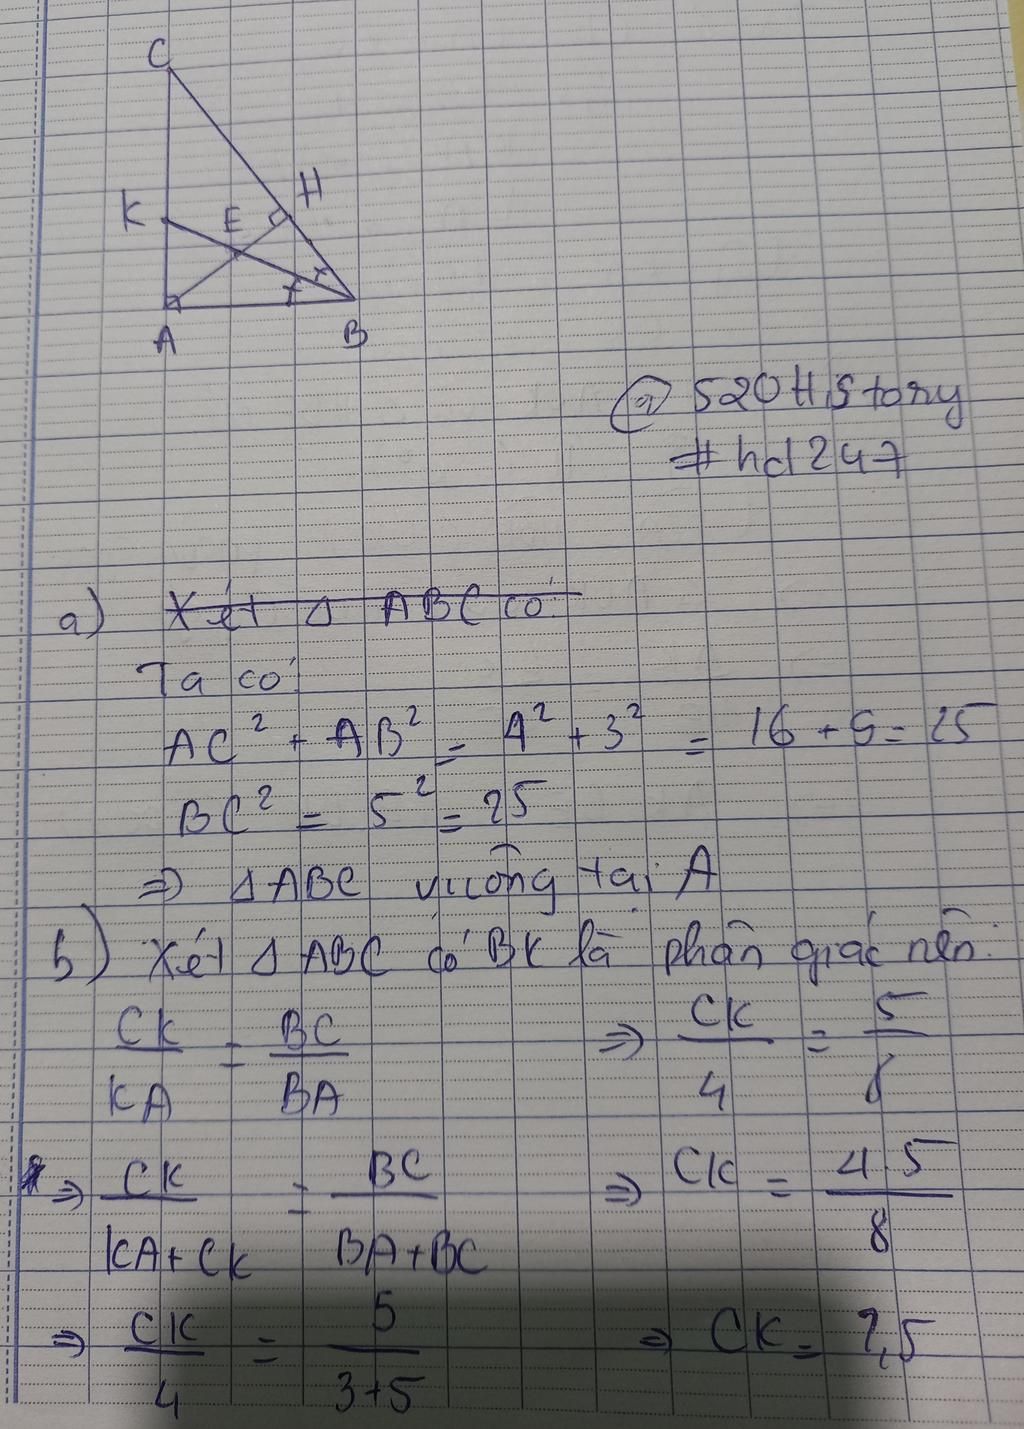 C
K E H
A B
@ 520 History
#hd247
a) Xét Δ ABC có
Ta có
AC² + AB² = 4² + 3² = 16 + 9 = 25
BC² = 5² = 25
⇒ ΔABC vuông tại A
b) Xét Δ ABC có BK là phân giác nên:
CK/KA = BC/BA ⇒ CK/4 = 5/8
⇒ CK/KA+CK = BC/BA+BC ⇒ CK = 4.5/8
⇒ CK/4 = 5/3+5 ⇒ CK = 2,5